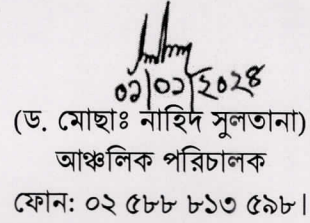 ০১/০১/২০২৪
(ড. মোছাঃ নাহিদ সুলতানা)
আঞ্চলিক পরিচালক
ফোন: ০২ ৫৮৮ ৮১৩ ৫৯৮।